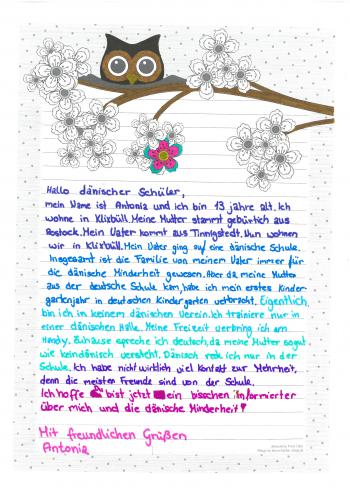 Hallo dänischer Schüler,
mein Name ist Antonia und ich bin 13 jahre alt. Ich
wohne in Klixbüll. Meine Mutter stammt gebürtich aus
Rostock. Mein Vater kommt aus Tinnigstedt. Nun wohnen
wir in Klixbüll. Mein Vater ging auf eine dänische Schule.
Insgesamt ist die Familie von meinem Vater immer für
die dänische Minderheit gewesen. Aber da meine Mutter
aus der deutsche Schule kam, habe ich mein erstes Kinder-
gartenjahr in deutschen Kindergarten verbracht. Eigentlich,
bin ich in keinem dänischen Verein. Ich trainiere nur in
einer dänischen Halle. Meine Freizeit verbring ich am
Handy. Zuhause spreche ich deutsch, da meine Mutter so gut
wie keindänisch versteht. Dänisch rede ich nur in der
Schule. Ich habe nicht wirklich viel Kontakt zur Mehrheit,
denn die meisten Freunde sind von der Schule.
Ich hoffe bist jetzt ein bisschen informierter
über mich und die dänische Minderheit!
Mit freundlichen Grüßen
Antonia